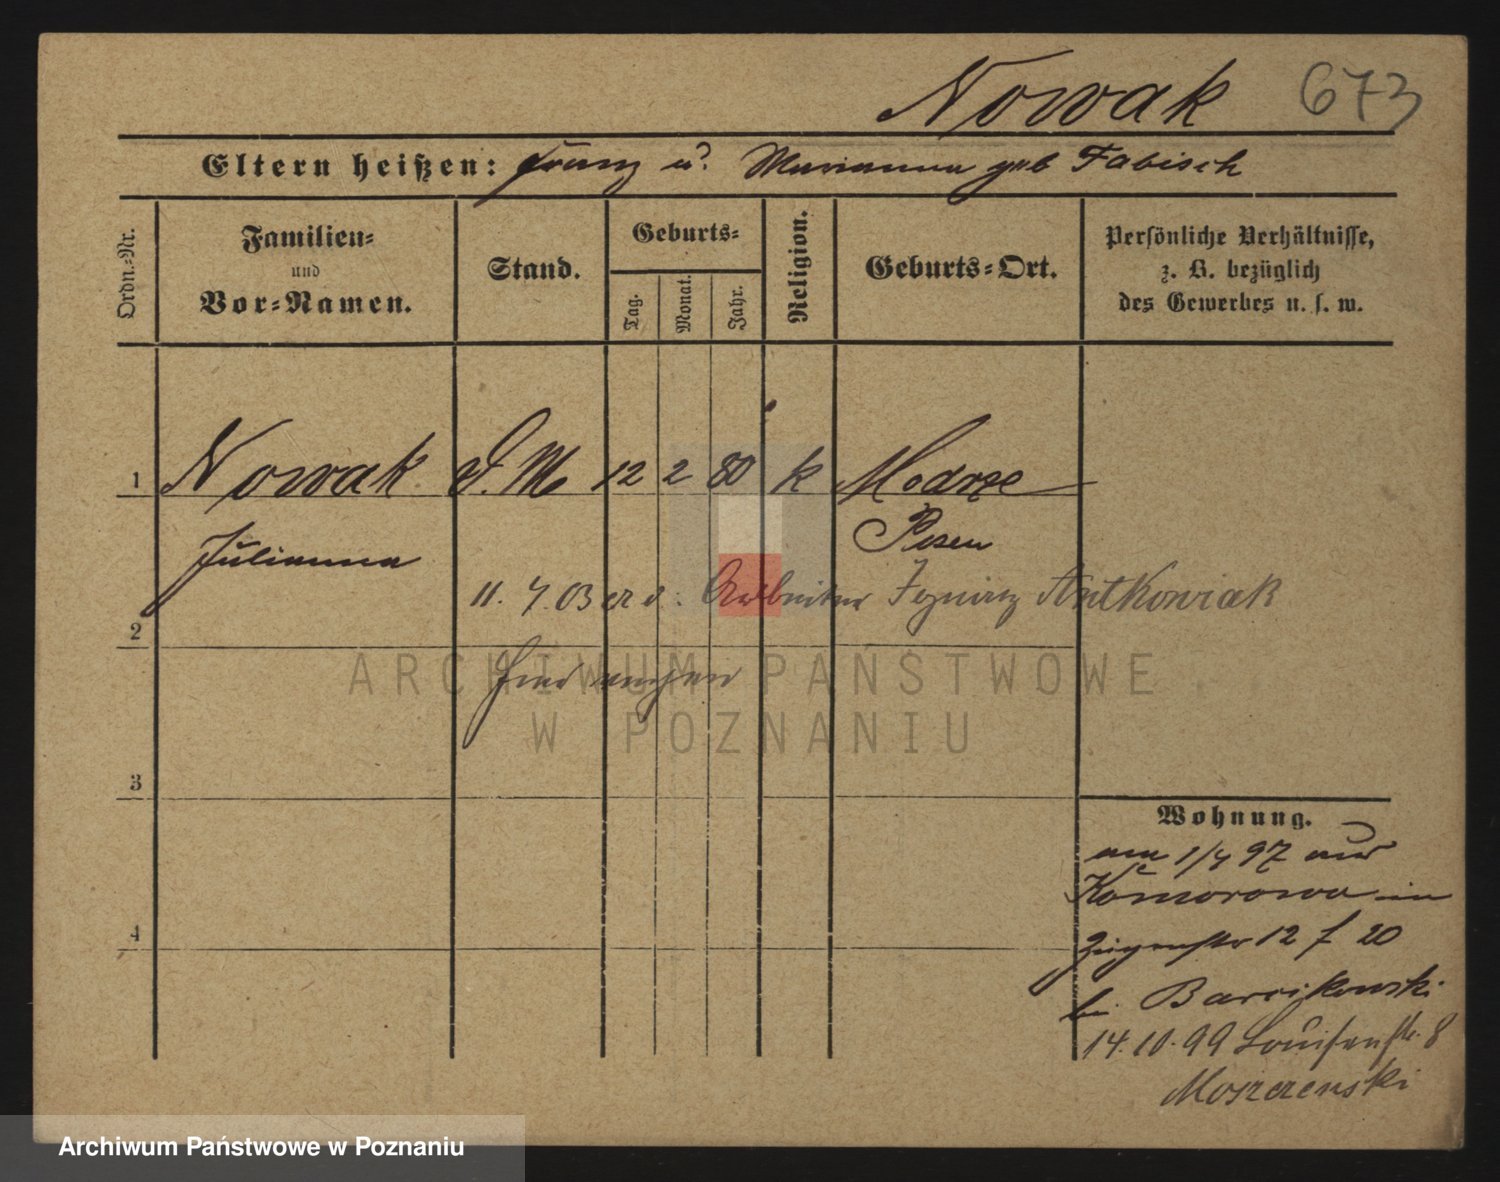 Nowak 673
Eltern heißen: Franz u. Marianna geb Fabisch
Ordn.-Nr.
Familien-
und
Vor-Namen.
Stand.
Geburts-
Tag.
Monat.
Jahr.
Religion.
Geburts-Ort.
Persönliche Verhältnisse,
z. B. bezüglich
des Gewerbes u. s. w.
1 Nowak D.M. 12 2 80 k Modrze
Julianna Posen
11. 7. 03 Arbeiter Ignatz Antkowiak
2
3
4
ARCHIWUM PAŃSTWOWE
W POZNANIU
Wohnung.
am 1/4 97 aus
Komorowo in
12 20
bei Barcikowski
14.10.99 Louisenstr. 8
Moszczenski
Archiwum Państwowe w Poznaniu